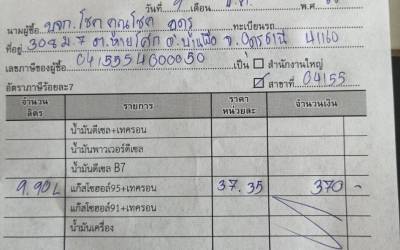 วันที่ 9 เดือน พ.ศ.
นามผู้ซื้อ บจก. โชค คูณโชค ทะเบียนรถ
ที่อยู่ 308 ม.7 ต. อ. บ้านผือ จ.อุดรธานี 41160
เลขภาษีของผู้ซื้อ 0415554000050 เป็น ☐ สำนักงานใหญ่
อัตราภาษีร้อยละ7 ☑ สาขาที่ 04155
จำนวนลิตร รายการ ราคาหน่วยละ จำนวนเงิน
น้ำมันดีเซล+เทครอน
น้ำมันพาวเวอร์ดีเซล
น้ำมันดีเซล B7
9.90L แก๊สโซฮอล์95+เทครอน 37.35 370 -
แก๊สโซฮอล์91+เทครอน
น้ำมันเครื่อง